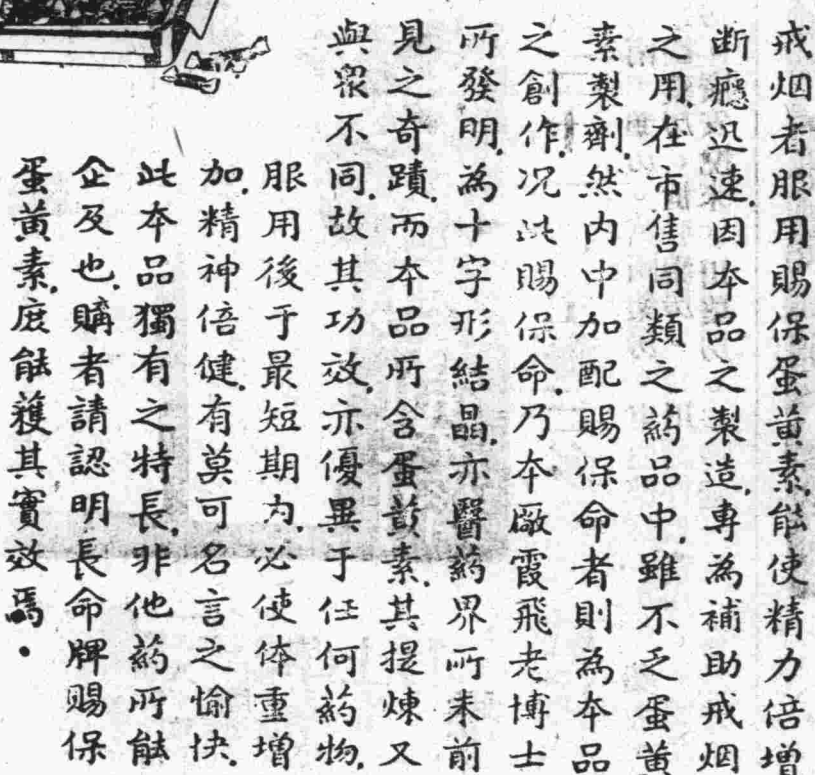 戒烟者服用賜保蛋黄素,能使精力倍增
断癮迅速,因本品之製造,專為補助戒烟
之用,在市售同類之葯品中,雖不乏蛋黄
素製劑,然内中加配賜保命者則為本品
之創作,况此賜保命,乃本廠霞飛老博士
所發明,為十字形結晶,亦醫葯界所未前
見之奇蹟,而本品所含蛋黄素,其提煉又
與衆不同,故其功效,亦優異于任何葯物,
服用後于最短期内,必使体重增
加,精神倍健,有莫可名言之愉快,
此本品獨有之特長,非他葯所能
企及也,購者請認明長命牌賜保
蛋黄素,庶能獲其實效焉.